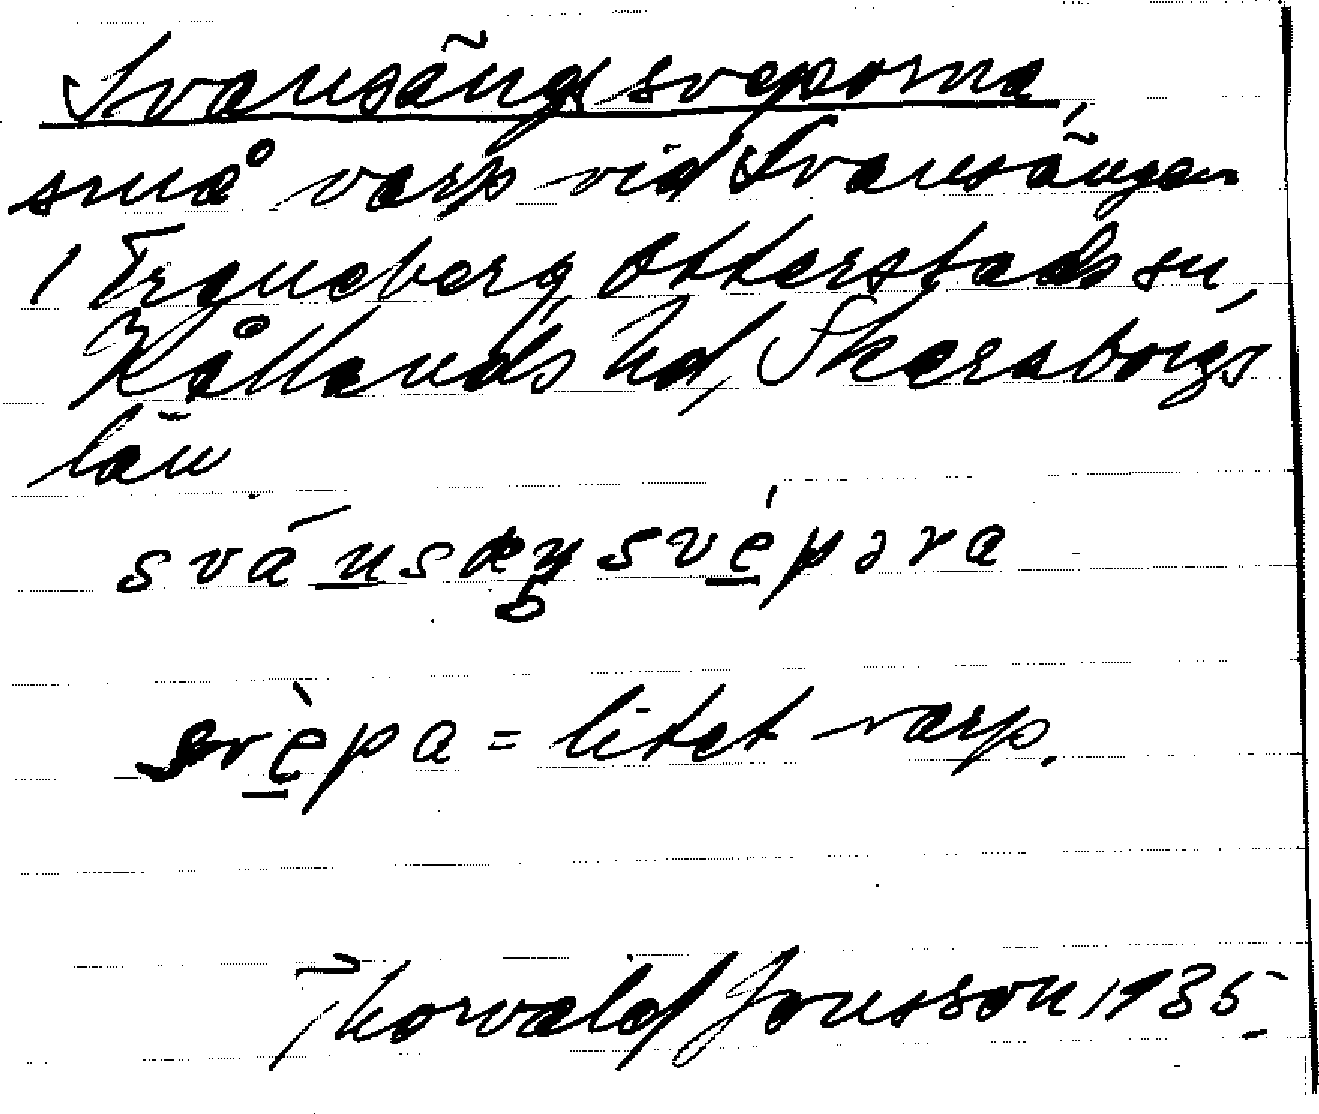 Svansängssveporna,
små varp vid Svansängen
i Traneberg, Otterstads sn,
Kållands hd, Skaraborgs
län.
svánsæŋsvépəra
svèpa = litet varp.
Thorvald Jonsson 1935